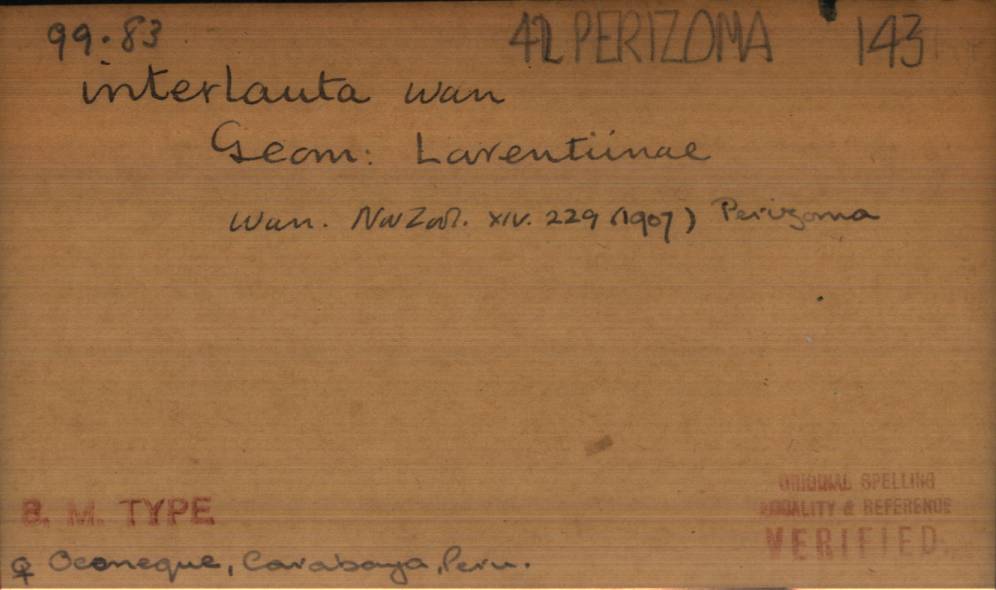 99.83 42 PERIZOMA 143
interlauta Warr
Geom: Larentiinae
Warr. Nov Zool. XIV. 229 (1907) Perizoma
B. M. TYPE
ORIGINAL SPELLING
LOCALITY & REFERENCE
VERIFIED.
♀ Oconeque, Carabaya, Peru.